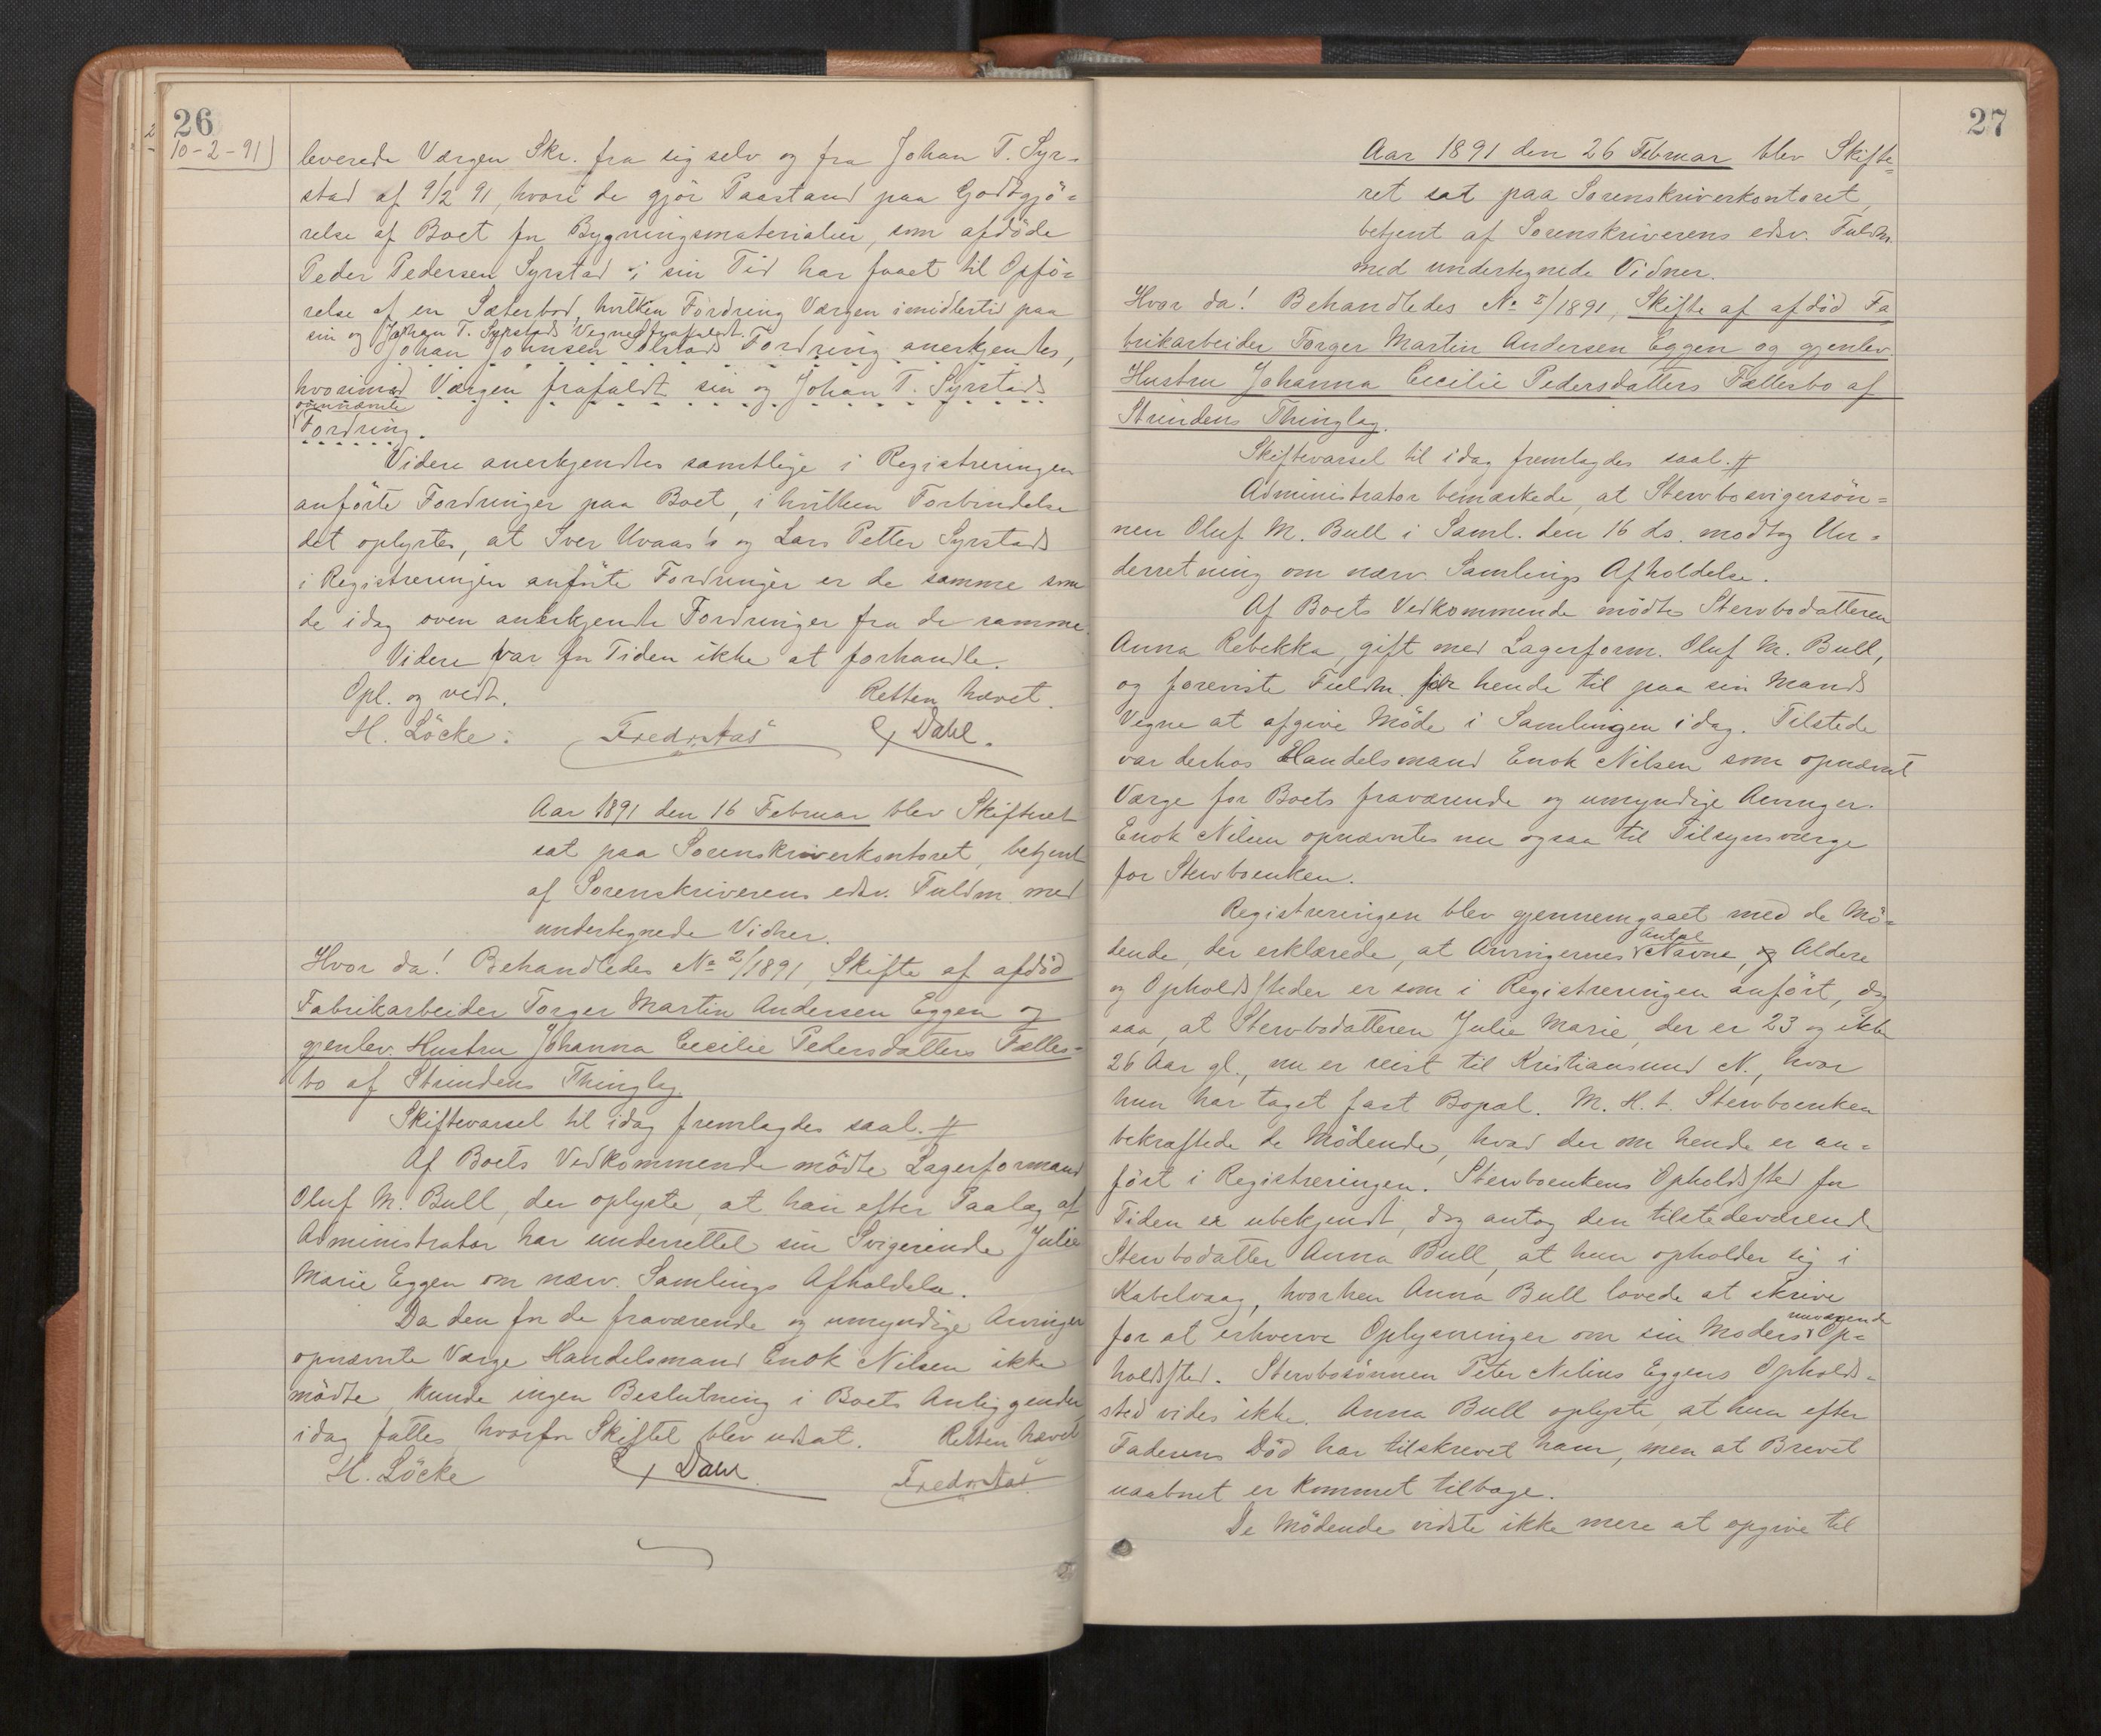 26
10-2-91)
leverede Værgen Skr. fra sig selv og fra Johan T. Syr-
stad af 9/2 91, hvori de gjør Paastand paa Godtgjö-
relse af Boet for Bygningsmaterialier, som afdöde
Peder Pedersen Syrstad i sin Tid har faaet til Opfö-
relse af en Sæterbod, hvilken Fordring Værgen imidlertid paa
sin og Johan T. Syrstads Vegne frafaldt.
Johan Johnsen Solstads Fordring anerkjendtes,
hvorimod Værgen frafaldt sin og Johan T. Syrstads
ovennævnte
Fordring.
Videre anerkjendtes samtlige i Registreringen
anförte Fordringer paa Boet, i hvilken Forbindelse
det oplystes, at Iver Uvaas's og Lars Petter Syrstads
i Registreringen anförte Fordringer er de samme som
de idag oven anerkjendte Fordringer fra de samme.
Videre var for Tiden ikke at forhandle.
Opl. og vedt. Retten hævet.
H. Löcke. Fredrstad Dahl.
Aar 1891 den 16 Februar blev Skifteret
sat paa Sorenskriverkontoret, betjent
af Sorenskriverens edsv. Fuldm. med
undertegnede Vidner.
Hvor da! Behandledes No 2/1891, Skifte af afdöd
Fabrikarbeider Torger Martin Andersen Eggen og
gjenlev. Hustru Johanna Cecilie Pedersdatters Fælles-
bo af Strindens Thinglag.
Skiftevarsel til idag fremlagdes saal. #
Af Boets Vedkommende mödte Lagerformand
Oluf M. Bull, der oplyste, at han efter Paalæg af
Administrator har underrettet sin Svigerinde Julie
Marie Eggen om nærv. Samlings Afholdelse.
Da den for de fraværende og umyndige Arvinger
opnævnte Værge Handelsmand Enok Nilsen ikke
mödte, kunde ingen Beslutning i Boets Anliggender
idag fattes, hvorfor Skiftet blev udsat. Retten hævet
H. Löcke Dahl. Fredrstad
27
Aar 1891 den 26 Februar blev Skifte-
ret sat paa Sorenskriverkontoret,
betjent af Sorenskriverens edsv. Fuldm.
med undertegnede Vidner.
Hvor da! Behandledes No 2/1891, Skifte af afdöd Fa
brikarbeider Torger Martin Andersen Eggen og gjenlev.
Hustru Johanna Cecilie Pedersdatters Fællesbo af
Strindens Thinglag.
Skiftevarsel til idag fremlagdes saal. #
Administrator bemærkede, at Stervbosvigersön-
nen Oluf M. Bull i Saml. den 16 ds. modtog Un-
derretning om nærv. Samlings Afholdelse.
Af Boets Vedkommende mödte Stervbodatteren
Anna Rebekka, gift med Lagerform. Oluf M. Bull,
og foreviste Fuldm. for hende til paa sin Mands
Vegne at afgive Möde i Samlingen idag. Tilstede
var derhos Handelsmand Enok Nilsen som opnævnt
Værge for Boets fraværende og umyndige Arvinger.
Enok Nilsen opnævntes nu ogsaa til Tilsynsværge
for Stervboenken.
Registreringen blev gjennemgaaet med de Mö-
Antal
dende, der erklærede, at Arvingernes Navne, og Aldere
og Opholdssteder er som i Registreringen anfört, dog
saa, at Stervbodatteren Julie Marie, der er 23 og ikke
26 Aar gl., nu er reist til Kristiansund N., hvor
hun har taget fast Bopæl. M. H. t. Stervboenken
bekræftede de Mödende, hvad der om hende er an-
fört i Registreringen. Stervboenkens Opholdssted for
Tiden er ubekjendt, dog antog den tilstedeværende
Stervbodatter Anna Bull, at hun opholder sig i
Kabelvaag, hvorhen Anna Bull lovede at skrive
nuværende
for at erhverve Oplysninger om sin Moders Op-
holdssted. Stervbosönnen Peter Nelius Eggens Opholds-
sted vides ikke. Anna Bull oplyste, at hun efter
Faderens Död har tilskrevet ham, men at Brevet
uaabnet er kommet tilbage.
De Mödende vidste ikke mere at opgive til